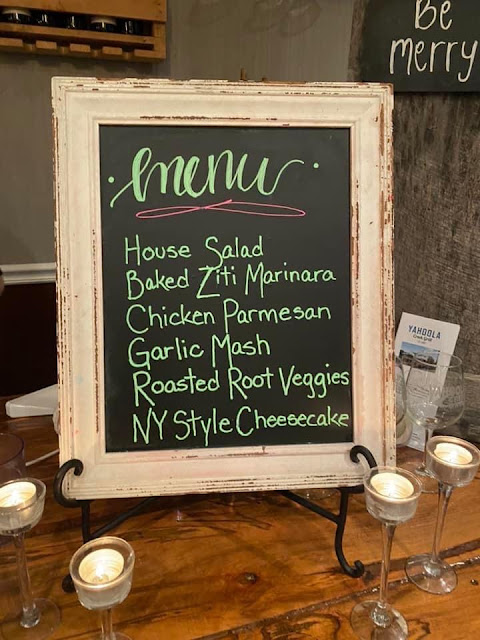 Be
merry
menu
House Salad
Baked Ziti Marinara
Chicken Parmesan
Garlic Mash
Roasted Root Veggies
NY Style Cheesecake
YAHOOLA